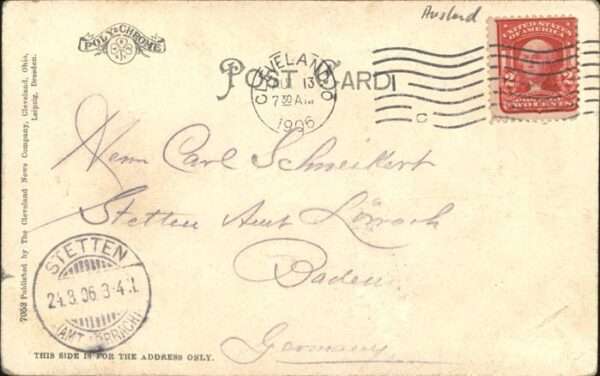 Ausland
POLY-CHROME
POST CARD
CLEVELAND, O.
13
7 30 AM
1906
C
UNITED STATES
OF AMERICA
2 2
TWO CENTS
Herrn Carl Schneikert
Stetten Amt Lörrach
Baden
Germany
STETTEN
24.3.06.3-4.N
(AMT LÖRRACH)
7053 Published by The Cleveland News Company, Cleveland, Ohio,
Leipzig, Dresden.
THIS SIDE IS FOR THE ADDRESS ONLY.